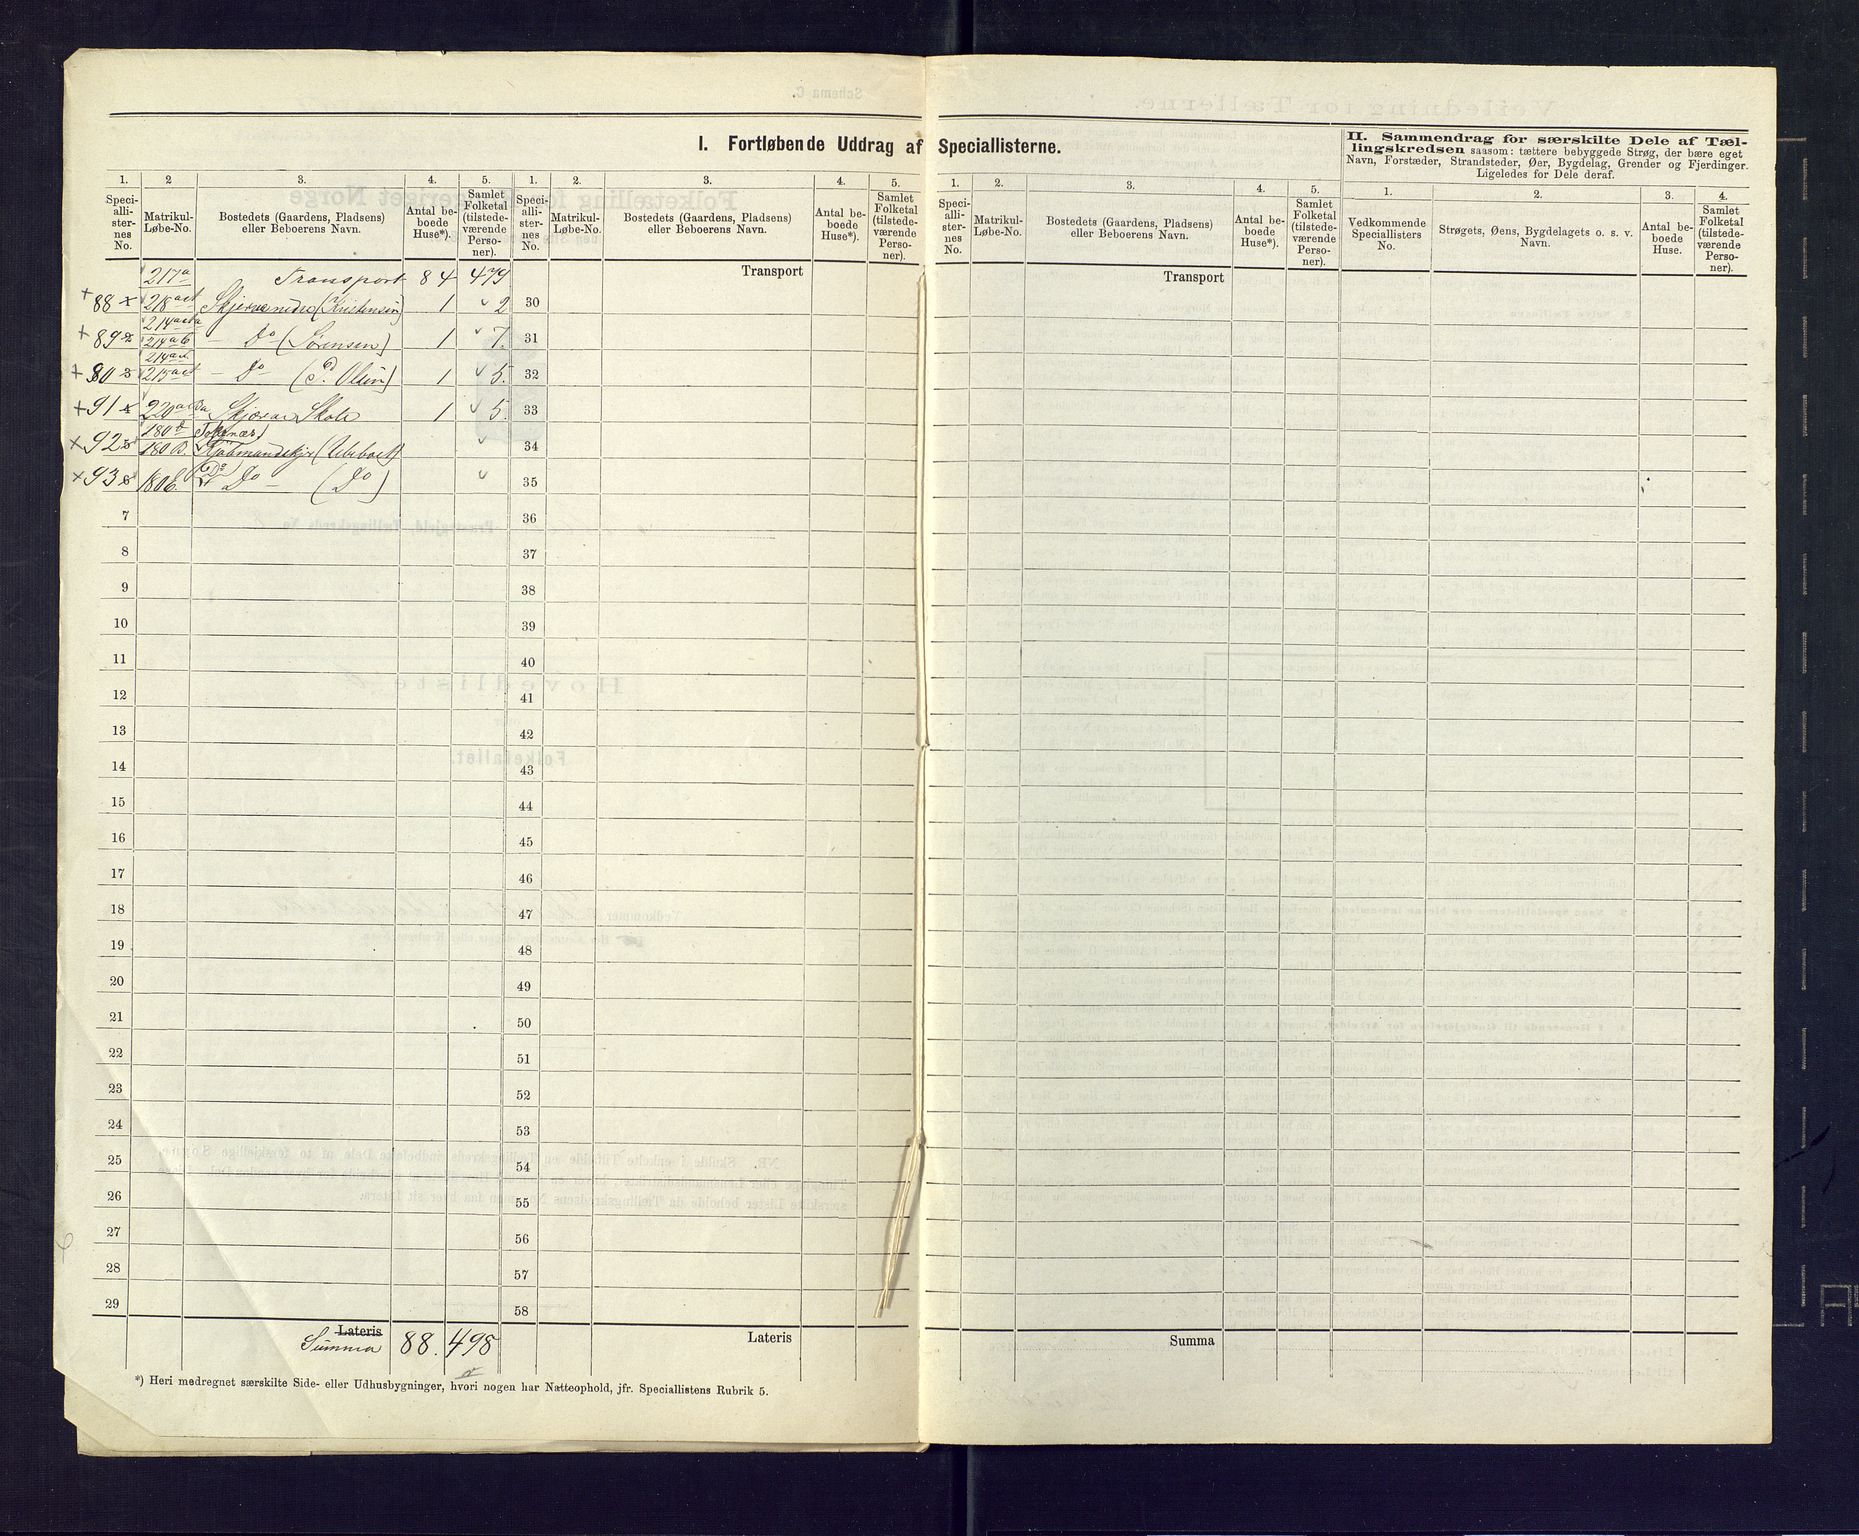 I. Fortløbende Uddrag af Speciallisterne.
II. Sammendrag for særskilte Dele af Tæl-
lingskredsen saasom: tættere bebyggede Strøg, der bære eget
Navn, Forstæder, Strandsteder, Øer, Bygdelag, Grender og Fjerdinger.
Ligeledes for Dele deraf.
1. 2 3. 4. 5. 1. 2. 3. 4. 5. 1. 2. 3. 4. 5. 1. 2. 3. 4.
Speci-
alli-
ster-
nes
No.
Matrikul-
Løbe-No.
Bostedets (Gaardens, Pladsens)
eller Beboerens Navn.
Antal be-
boede
Huse*).
Samlet
Folketal
(tilstede-
værende
Perso-
ner).
Speci-
alli-
ster-
nes
No.
Matrikul-
Løbe-No.
Bostedets (Gaardens, Pladsens)
eller Beboerens Navn.
Antal be-
boede
Huse*).
Samlet
Folketal
(tilstede-
værende
Perso-
ner).
Speci-
alli-
ster-
nes
No.
Matrikul-
Løbe-No.
Bostedets (Gaardens, Pladsens)
eller Beboerens Navn.
Antal be-
boede
Huse*).
Samlet
Folketal
(tilstede-
værende
Perso-
ner).
Vedkommende
Speciallisters
No.
Strøgets, Øens, Bygdelagets o. s. v.
Navn.
Antal be-
boede
Huse.
Samlet
Folketal
(tilstede-
værende
Perso-
ner).
217a Transport 84 479
88 218 (Kristensen) 1 2
89 2 Do (Sørensen) 1 7.
80 3 Do (P. Olsen) 1 5.
91 4 220 Skjervø Skole 1 5.
92 5 180 B.
93 6 180 Do (Do)
7
8
9
10
11
12
13
14
15
16
17
18
19
20
21
22
23
24
25
26
27
28
29
Lateris
Summa 88. 498
Transport
30
31
32
33
34
35
36
37
38
39
40
41
42
43
44
45
46
47
48
49
50
51
52
53
54
55
56
57
58
Lateris
Transport
Summa
*) Heri medregnet særskilte Side- eller Udhusbygninger, hvori nogen har Natteophold, jfr. Speciallistens Rubrik 5.